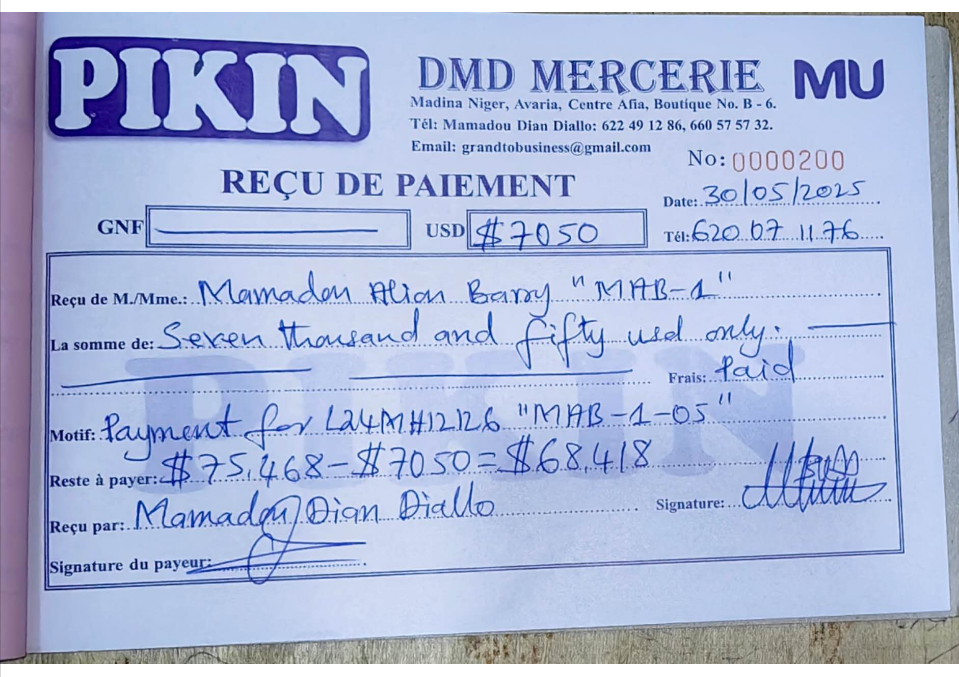 PIKIN
DMD MERCERIE
MU
Madina Niger, Avaria, Centre Afia, Boutique No. B - 6.
Tél: Mamadou Dian Diallo: 622 49 12 86, 660 57 57 32.
Email: grandtobusiness@gmail.com
No: 0000200
REÇU DE PAIEMENT
Date: 30/05/2025
GNF
USD $7050
Tél: 620 07 11 76
Reçu de M./Mme.: Mamadou Alion Barry "MAB-1"
La somme de: Seven thousand and fifty usd only.
Frais: Paid
Motif: Payment for L24MH12126 "MAB-1-05"
Reste à payer: $75,468-$7050=$68,418
Reçu par: Mamadou Dian Diallo
Signature:
Signature du payeur:
PIKIN